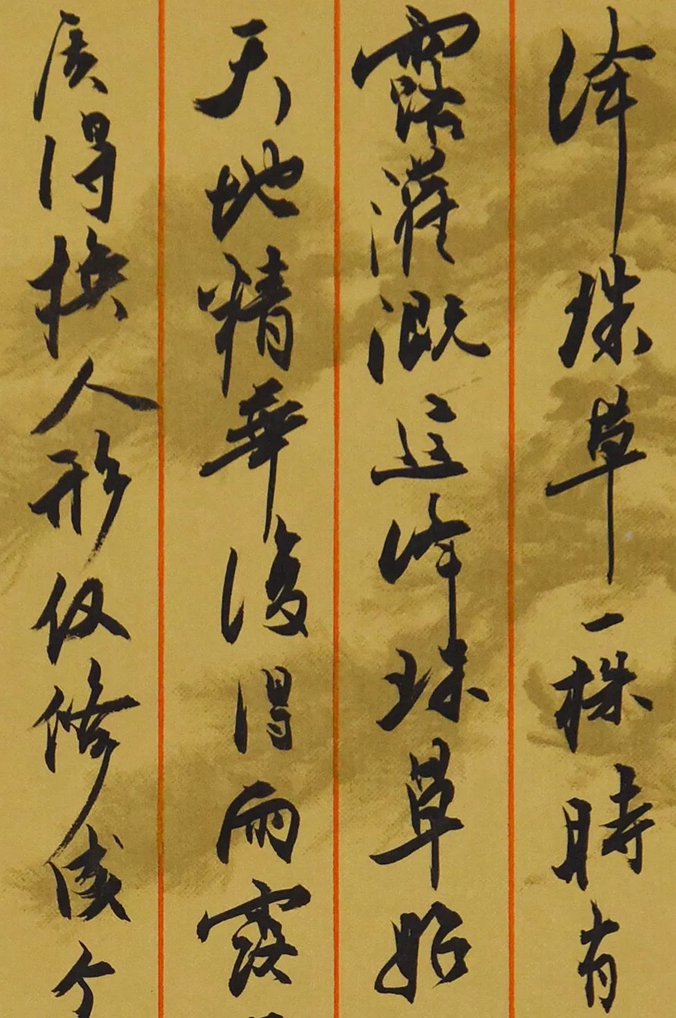 绛珠草一株時有
露灌溉這绛珠草始
天地精華復得雨露
质得換人形仅修成个